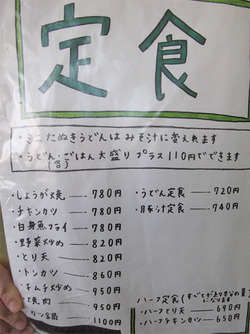 定食
・ミニたぬきうどんはみそ汁に変えれます
・うどん・ごはん大盛りプラス110円でできます
(各)
・しょうが焼 780円
・チキンカツ 780円
・白身魚フライ 780円
・野菜炒め 820円
・とり天 820円
・トンカツ 860円
・キムチ炒め 950円
焼肉 950円
1100円
・うどん定食 720円
・豚汁定食 740円
ハーフ定食(すべて
になります
・ハーフとり天 690円
・ハーフチキンカツ 650円